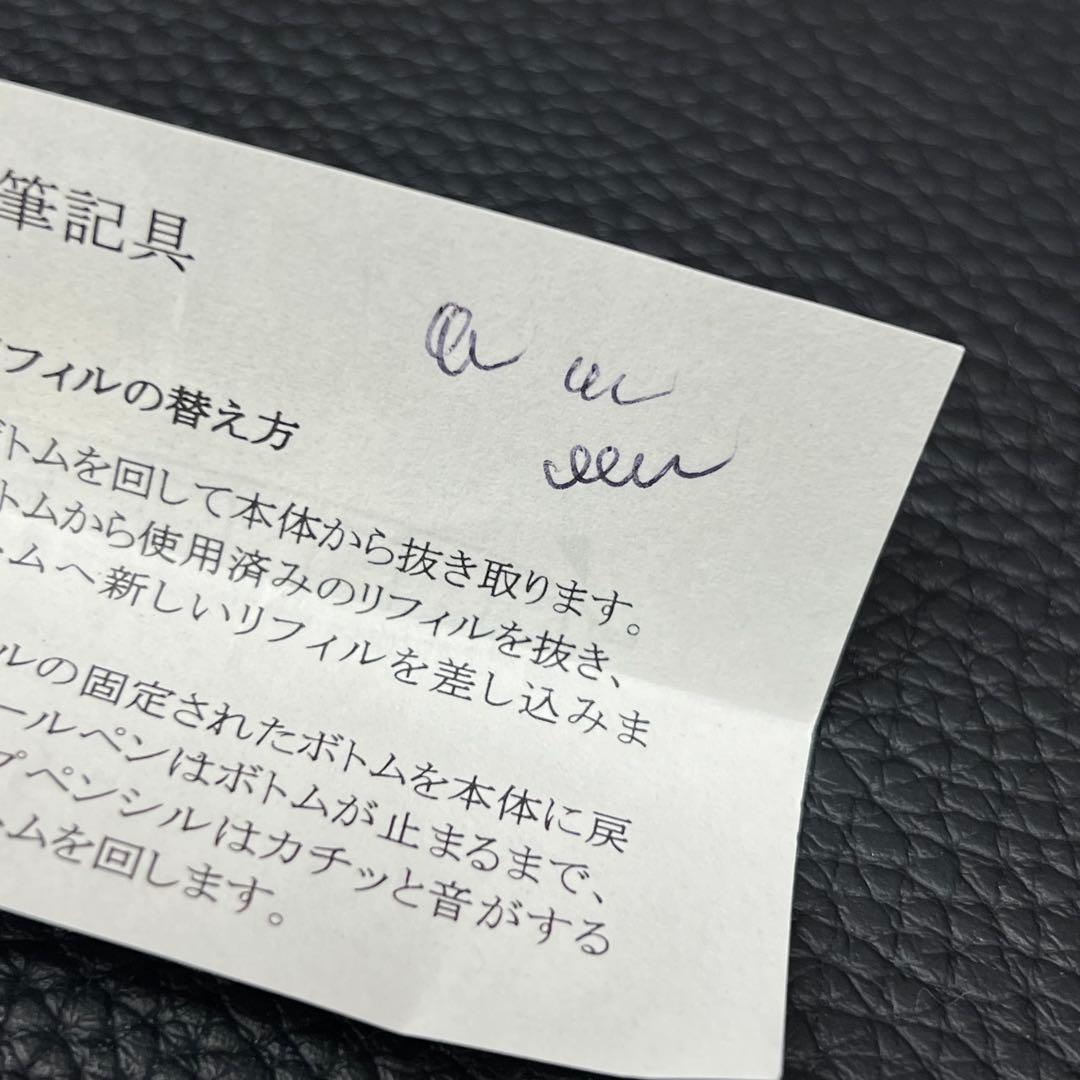 筆記具
フィルの替え方
ボトムを回して本体から抜き取ります。
トムから使用済みのリフィルを抜き、
ムへ新しいリフィルを差し込みま
ルの固定されたボトムを本体に戻
ールペンはボトムが止まるまで、
プペンシルはカチッと音がする
ムを回します。